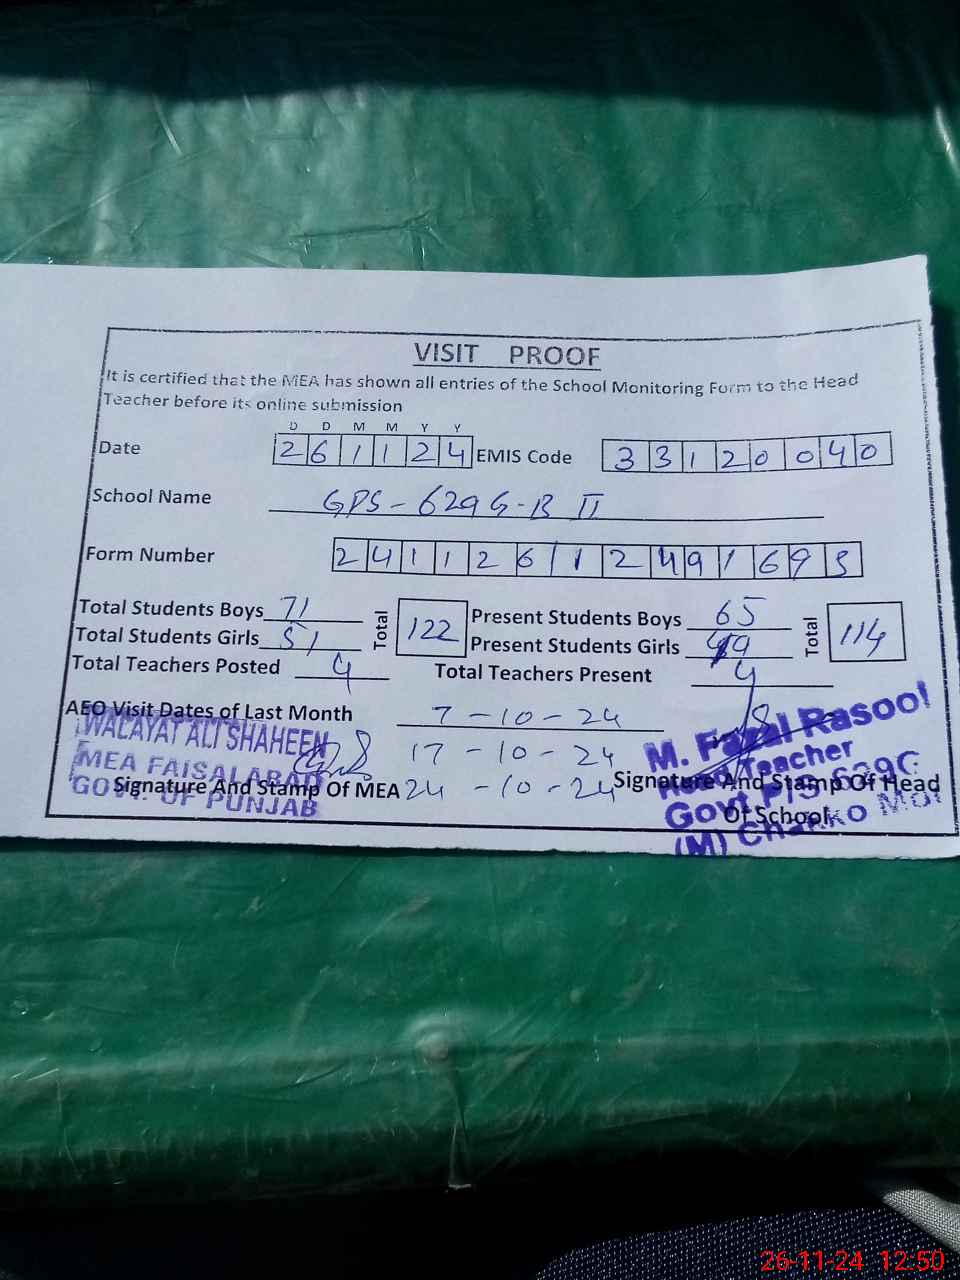 VISIT PROOF
It is certified that the MEA has shown all entries of the School Monitoring Form to the Head
Teacher before its online submission
D D M M Y Y
Date 2 6 1 1 2 4 EMIS Code 3 3 1 2 0 0 4 0
School Name GPS - 629 G-B II
Form Number 2 4 1 1 2 6 1 2 4 9 1 6 9 3
Total Students Boys 71 Total 122 Present Students Boys 65 Total 114
Total Students Girls 51 Present Students Girls 49
Total Teachers Posted 4 Total Teachers Present 4
AEO Visit Dates of Last Month 7-10-24
17-10-24
24-10-24
WALAYAT ALI SHAHEEN
MEA FAISALABAD
GOVT. OF PUNJAB
Signature And Stamp Of MEA
M. Fazal Rasool
Head Teacher
Govt P/S 629G
(M)
Signature And Stamp Of Head
Of School
26-11-24 12:50